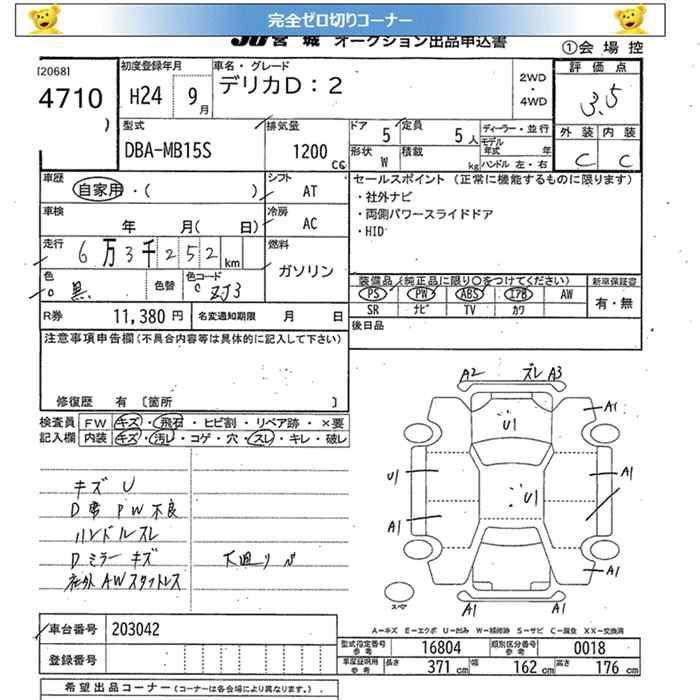 完全ゼロ切りコーナー
JU宮城 オークション出品申込書
①会場控
[2068]
4710
)
初度登録年月
H24 9月
車名・グレード
デリカD:2
2WD・4WD
評価点
3.5
外装 内装
C C
型式
DBA-MB15S
排気量
1200 cc
ドア 5
定員 5人
形状 W
積載 kg
ディーラー・並行
モデル年式 年
ハンドル 左・右
車歴
自家用・( )
シフト
AT
車検
年 月( 日)
冷房
AC
走行
6万3千252km
燃料
ガソリン
色
黒
色替
色コード
ZJ3
R券 11,380 円
名変通知期限 月 日
セールスポイント (正常に機能するものに限ります)
・社外ナビ
・両側パワースライドドア
・HID
装備品(純正品に限り○をつけてください)
PS PW ABS エアB AW
SR ナビ TV カワ
新車保証書
有・無
後日品
注意事項申告欄(不具合内容等は具体的に記入して下さい)
修復歴 有 [箇所 ]
検査員記入欄
FW キズ・飛石・ヒビ割・リペア跡・×要
内装 キズ・汚レ・コゲ・穴・スレ・キレ・破レ
キズ U
D席 PW 不良
ハンドルスレ
Dミラー キズ
社外AWスタットレス
下廻り
A2 ズレ A3
U1
A1
U1
A1
U1
A1
A1
A1
A1
スペア
A−キズ E−エクボ U−凹み W−補修跡 S−サビ C−腐食 XX−交換済
車台番号 203042
登録番号
型式指定番号 参考 16804
類別区分番号 参考 0018
車庫証明用 参考 長さ 371 cm 幅 162 cm 高さ 176 cm
希望出品コーナー (コーナーは各会場により異なります。)